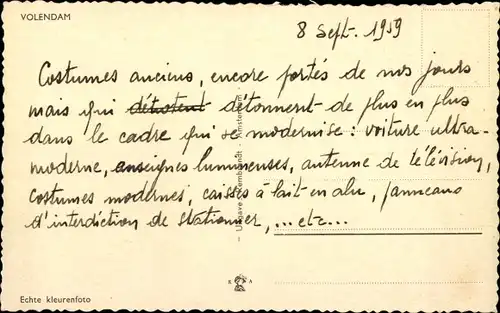 VOLENDAM
8 Sept. 1959
Costumes anciens, encore portés de nos jours
mais qui détotent détonnent de plus en plus
dans le cadre qui se modernise : voiture ultra-
moderne, enseignes lumineuses, antenne de télévision,
costumes modernes, caisses à lait en alu, panneaux
d'interdiction de stationner, ... etc...
Uitgave Rembrandt Amsterdam
R A
Echte kleurenfoto